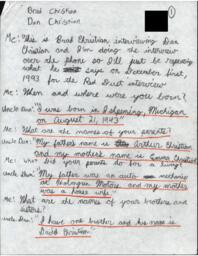 Brad Christian
Dan Christian
1
Me: This is Brad Christian interviewing Dan
Christian and I'm doing the interview
over the phone so I'll just be repeating
what he says on December first,
1993 for the Red Dust interview
Me: When and where were you born?
Uncle Dan: "I was born in Ishpeming, Michigan
on August 21, 1943"
Me: What are the names of your parents?
Uncle Dan: "My father's name is Arthur Christian
and my mother's name is Christian
Me: What did your parents do for a living?
Uncle Dan: My father was an auto mechanic
at Motors, and my mother
was a house wife"
Me: What are the names of your brothers and
sisters?
Uncle Dan: "I have one brother and his name is
David Christian"